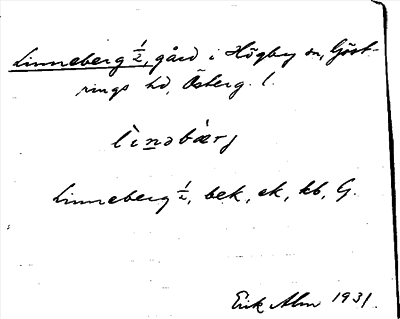 Linneberg ½, gård i Högby sn, Göst-
rings hd, Österg. l.
lìnəbærj
Linneberg ½, bek, ek, kb, G.
Erik Alm 1931.